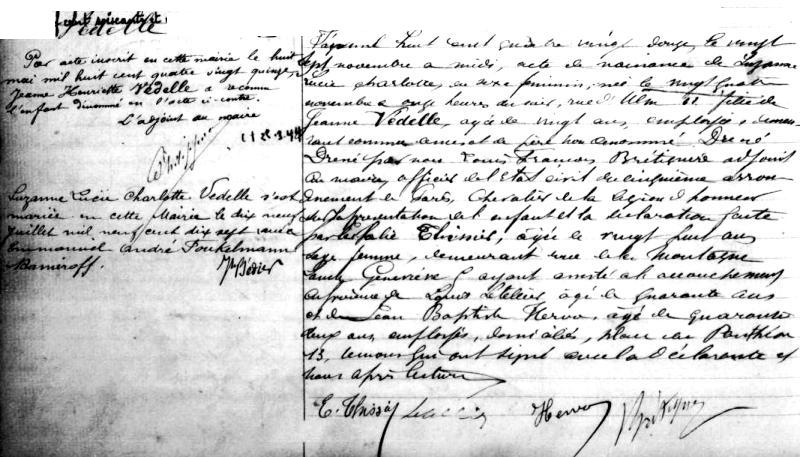 Vedelle
Par acte inscrit en cette mairie le huit
mai mil huit cent quatre vingt quinze
Jeanne Henriette Vedelle a reconnu
l'enfant dénommé en l'acte ci-contre.
L'adjoint au maire
Suzanne Lucie Charlotte Vedelle s'est
mariée en cette Mairie le dix neuf
juillet mil neuf cent dix sept avec
Emmanuel André Foukelmann
Barnéroff.
L'an mil huit cent quatre vingt douze, le vingt
sept novembre à midi, acte de naissance de Suzanne
Lucie Charlotte, du sexe féminin, née le vingt quatre
novembre à onze heures du soir, rue d'Ulm 11, fille de
Jeanne Vedelle, âgée de vingt ans, employée, demeu-
rant comme et de père non dénommé Dressé
Dressé par nous Louis François Brétignère adjoint
au maire, officier de l'Etat civil du cinquième arron-
dissement de Paris, Chevalier de la Légion d'honneur
sur la présentation de l'enfant et la déclaration faite
par âgée de vingt huit ans
sage femme, demeurant rue de la Montagne
Sainte Geneviève 5 ayant assisté à l'accouchement
en présence de Louis Letellier, âgé de quarante ans
et de Jean Baptiste Hervo, âgé de quarante
deux ans, employés, domiciliés, place du Panthéon
13, témoins qui ont signé avec la déclarante et
nous après lecture
Hervo